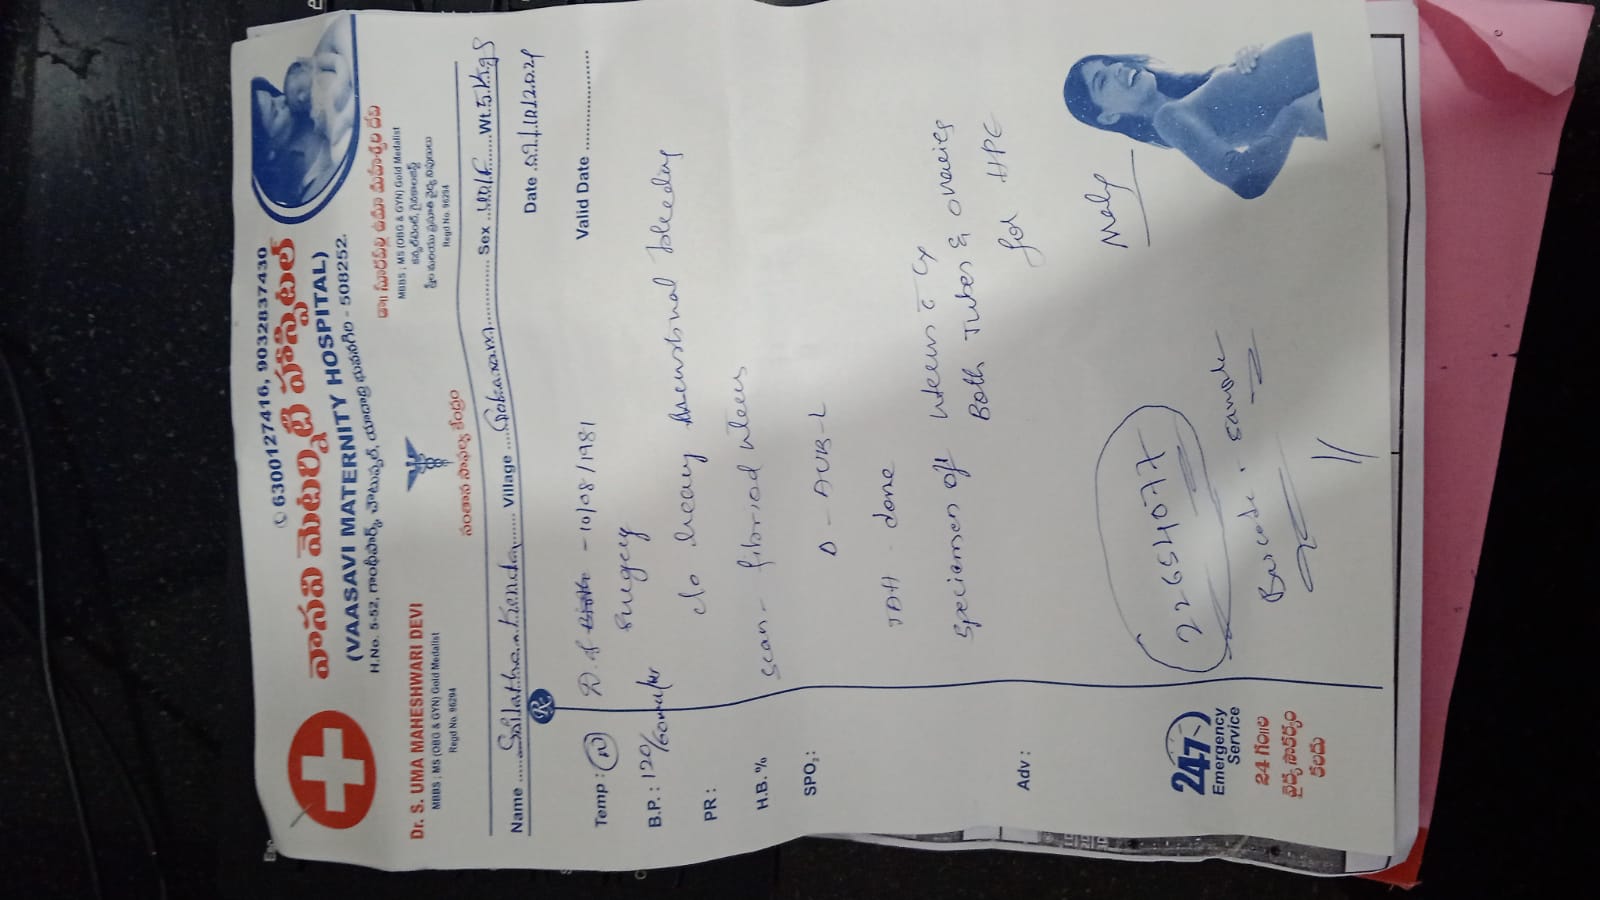 ✆ 6300127416, 9032837430
వాసవి మెటర్నిటీ హాస్పిటల్
(VAASAVI MATERNITY HOSPITAL)
H.No. 5-52, గాంధీపార్క్ చౌటుప్పల్, యాదాద్రి భువనగిరి - 508252.
Dr. S. UMA MAHESHWARI DEVI
MBBS ; MS (OBG & GYN) Gold Medalist
Regd No. 96294
సంతాన సాఫల్య కేంద్రం
MBBS ; MS (OBG & GYN) Gold Medalist
Regd No. 96294
Name Village Sex Wt.
Date
Valid Date
Temp : N
B.P. : 120/60
PR :
H.B. %
SPO₂ :
Adv :
- 10/08/1981
Surgery
c/o heavy menstrual bleeding
scan - fibriod uterus
D - AUB-L
TAH - done
specimen of uterus c̄ Cx
Both Tubes & ovaries
for HPE
2265407X
Barcode - sample
24x7
Emergency
Service
24 గం॥ల
వైద్య సౌకర్యం
కలదు